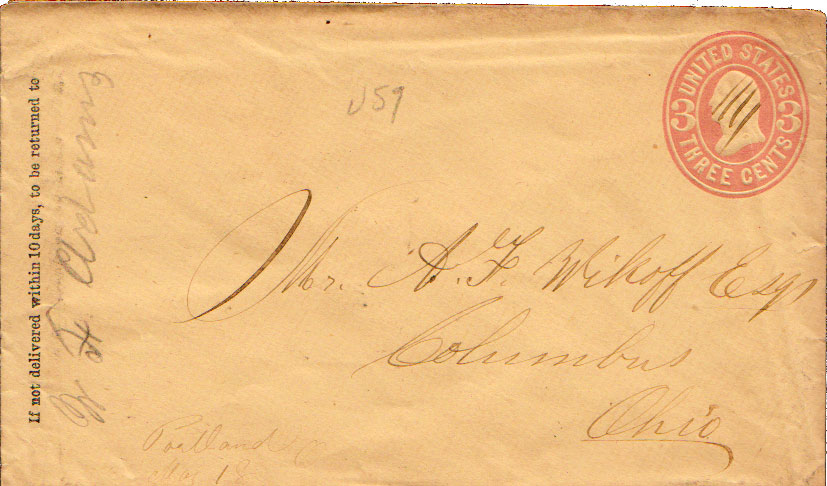 If not delivered within 10 days, to be returned to
Adams
U59
UNITED STATES
3 3
THREE CENTS
Mr. A. F. Wikoff Esqr
Columbus
Ohio
Portland
18